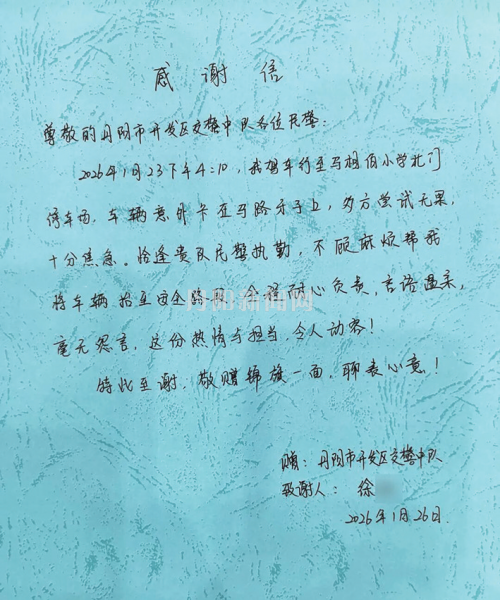 感谢信
尊敬的丹阳市开发区交警中队各位民警:
2026年1月23下午4:10,我驾车行至马相伯小学北门
停车西,车辆意外卡在马路牙子上,多方尝试无果,
十分焦急。恰逢贵队民警执勤,不顾麻烦帮我
将车辆抬至安全路段,全程耐心负责,言语温柔,
毫无怨言,这份热情与担当,令人动容!
特此至谢,敬赠锦旗一面,聊表心意!
赠:丹阳市开发区交警中队
致谢人:徐
2026年1月26日
丹阳新闻网